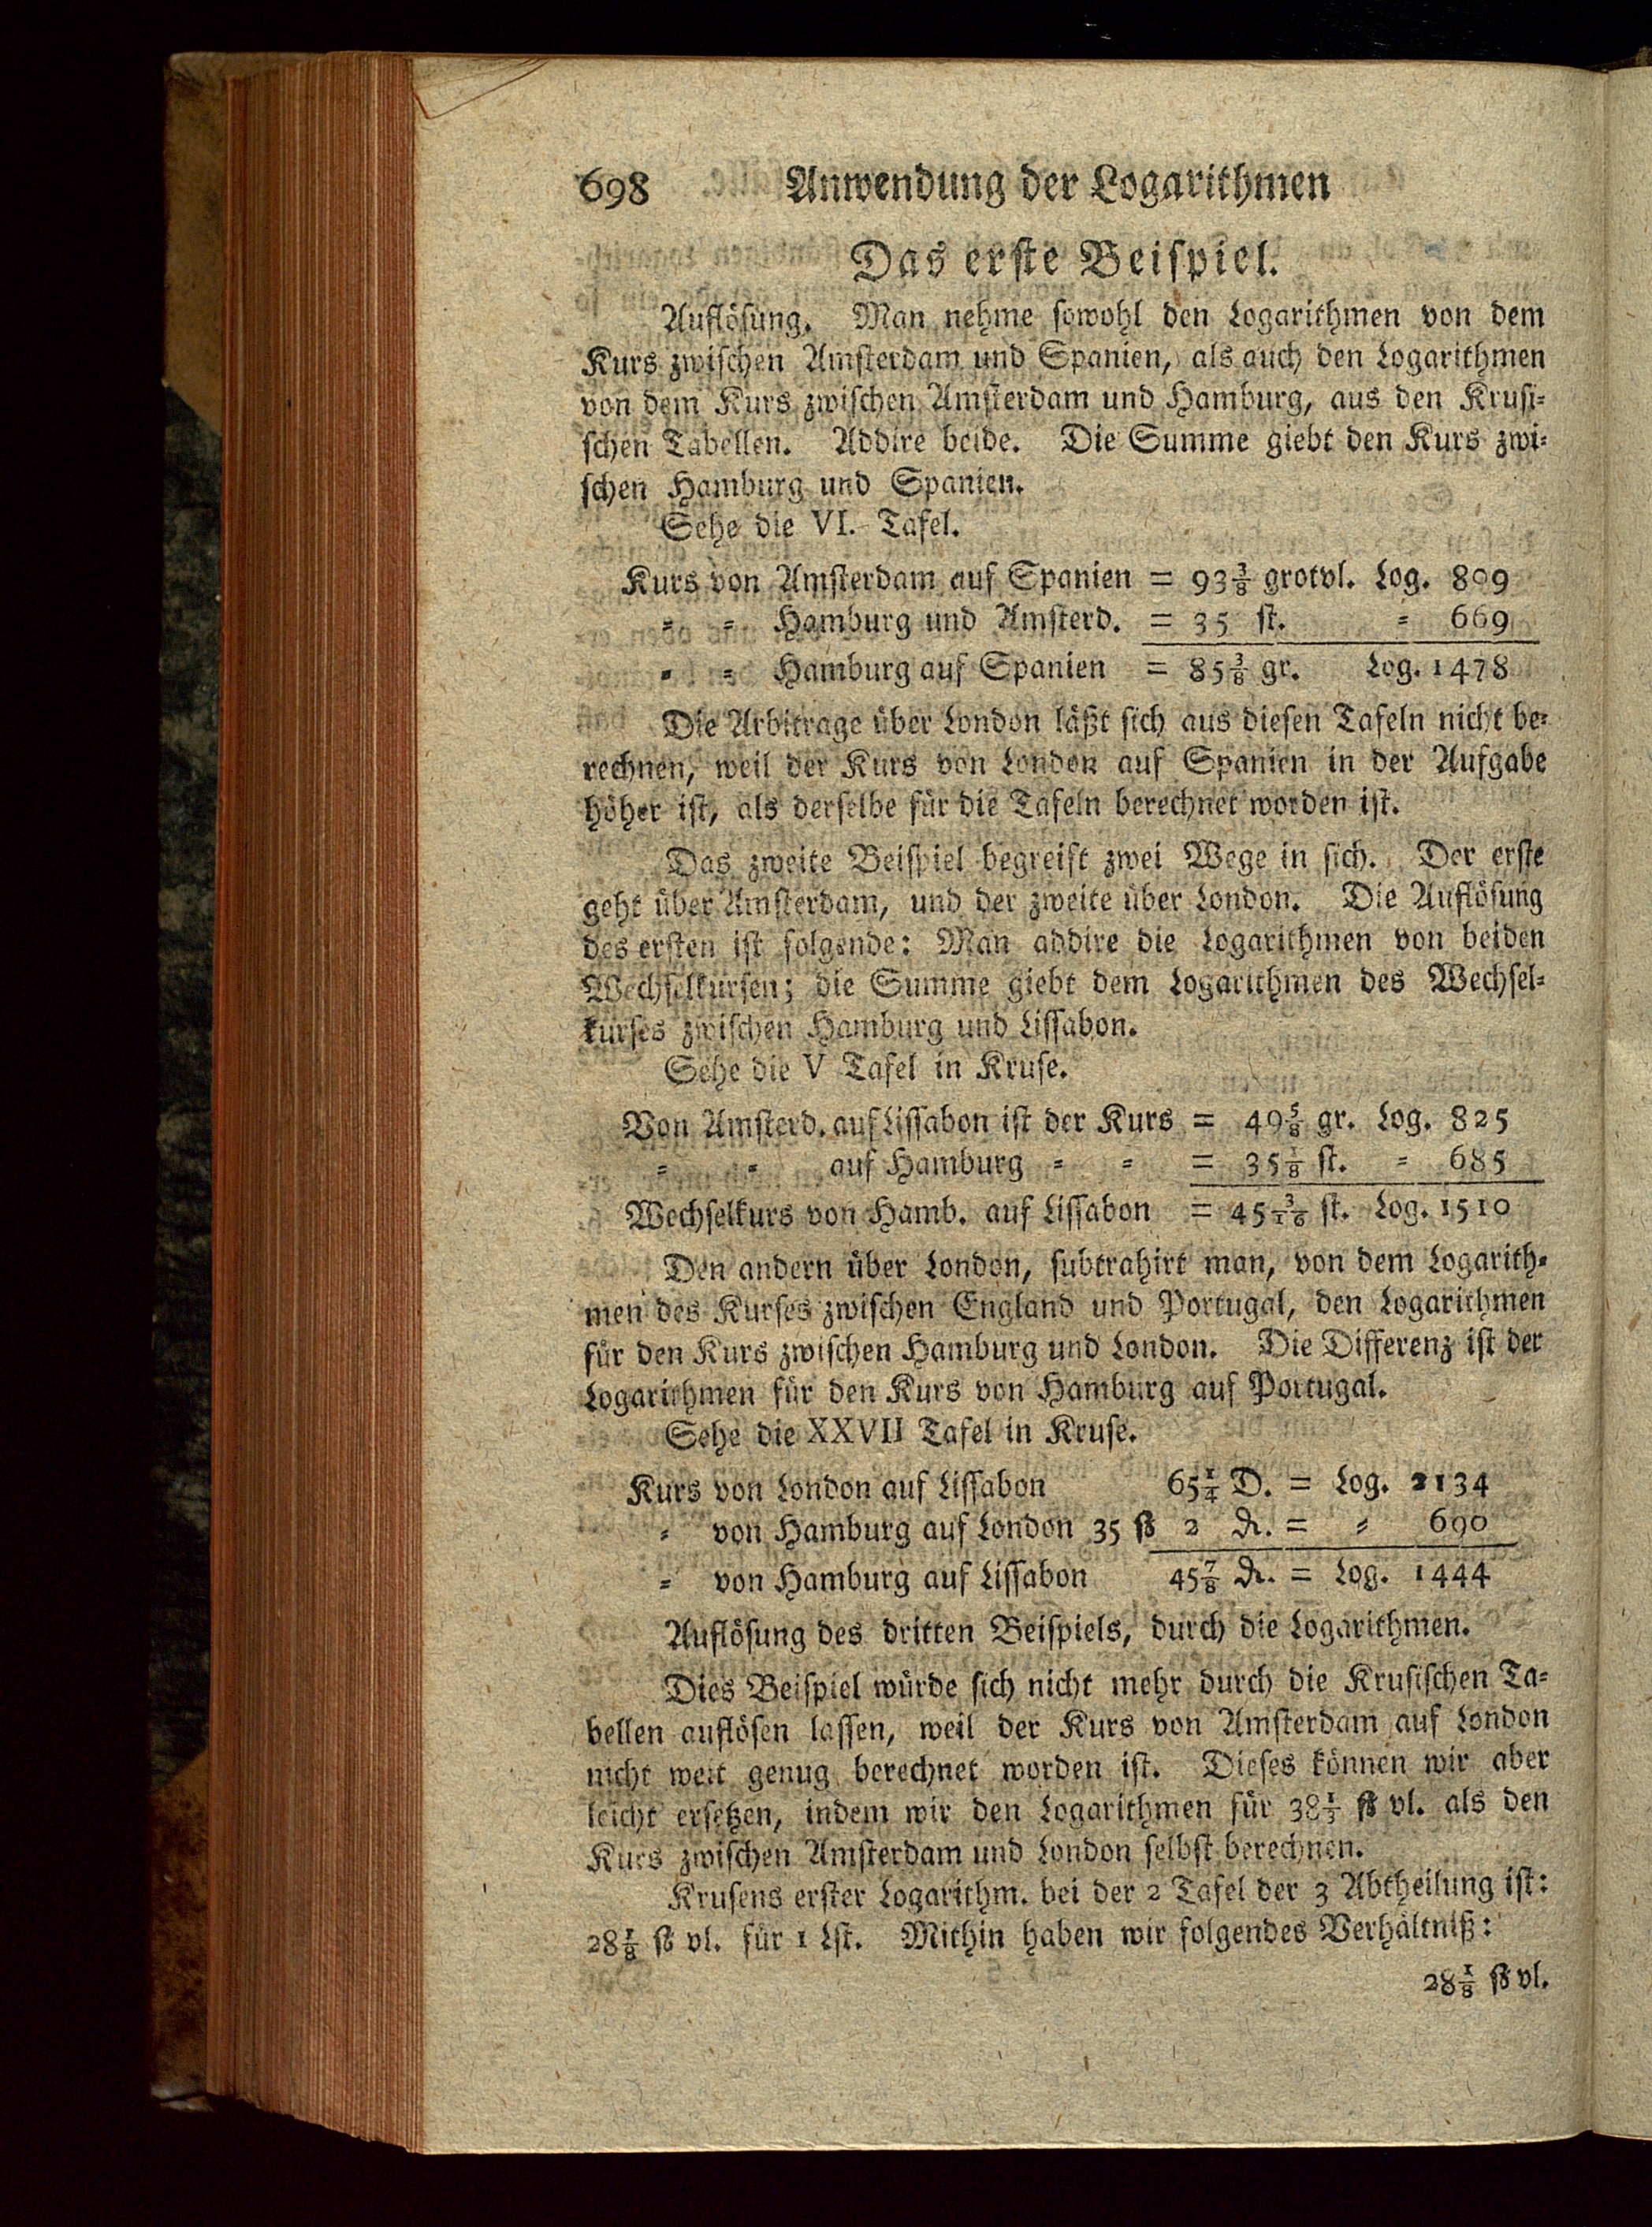 698 Anwendung der Logarithmen
Das erste Beispiel.
Auflösung. Man nehme sowohl den Logarithmen von dem
Kurs zwischen Amsterdam und Spanien, als auch den Logarithmen
von dem Kurs zwischen Amsterdam und Hamburg, aus den Krusi-
schen Tabellen. Addire beide. Die Summe giebt den Kurs zwi-
schen Hamburg und Spanien.
Sehe die VI. Tafel.
Kurs von Amsterdam auf Spanien = 93 3/8 grotvl. Log. 809
= = Hamburg und Amsterd. = 35 st. = 669
= = Hamburg auf Spanien = 85 3/8 gr. Log. 1478
Die Arbitrage über London läßt sich aus diesen Tafeln nicht be-
rechnen, weil der Kurs von London auf Spanien in der Aufgabe
höher ist, als derselbe für die Tafeln berechnet worden ist.
Das zweite Beispiel begreift zwei Wege in sich. Der erste
geht über Amsterdam, und der zweite über London. Die Auflösung
des ersten ist folgende: Man addire die Logarithmen von beiden
Wechselkursen; die Summe giebt dem Logarithmen des Wechsel-
kurses zwischen Hamburg und Lissabon.
Sehe die V Tafel in Kruse.
Von Amsterd. auf Lissabon ist der Kurs = 49 5/8 gr. Log. 825
= = auf Hamburg = = = 35 1/8 st. = 685
Wechselkurs von Hamb. auf Lissabon = 45 3/16 st. Log. 1510
Den andern über London, subtrahirt man, von dem Logarith-
men des Kurses zwischen England und Portugal, den Logarithmen
für den Kurs zwischen Hamburg und London. Die Differenz ist der
Logarithmen für den Kurs von Hamburg auf Portugal.
Sehe die XXVII Tafel in Kruse.
Kurs von London auf Lissabon 65 1/4 D. = Log. 2134
= von Hamburg auf London 35 ß 2 ₰. = = 690
= von Hamburg auf Lissabon 45 7/8 ₰. = Log. 1444
Auflösung des dritten Beispiels, durch die Logarithmen.
Dies Beispiel würde sich nicht mehr durch die Krusischen Ta-
bellen auflösen lassen, weil der Kurs von Amsterdam auf London
nicht weit genug berechnet worden ist. Dieses können wir aber
leicht ersetzen, indem wir den Logarithmen für ß vl. als den
Kurs zwischen Amsterdam und London selbst berechnen.
Krusens erster Logarithm. bei der 2 Tafel der 3 Abtheilung ist:
28 1/8 ß vl. für 1 Lst. Mithin haben wir folgendes Verhältniß:
28 1/8 ß vl.